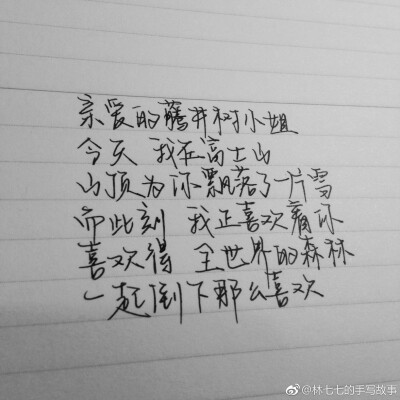 亲爱的藤井树小姐
今天 我在富士山
山顶为你飘落了一片雪
而此刻 我正喜欢着你
喜欢得 全世界的森林
一起倒下那么喜欢
@林七七的手写故事